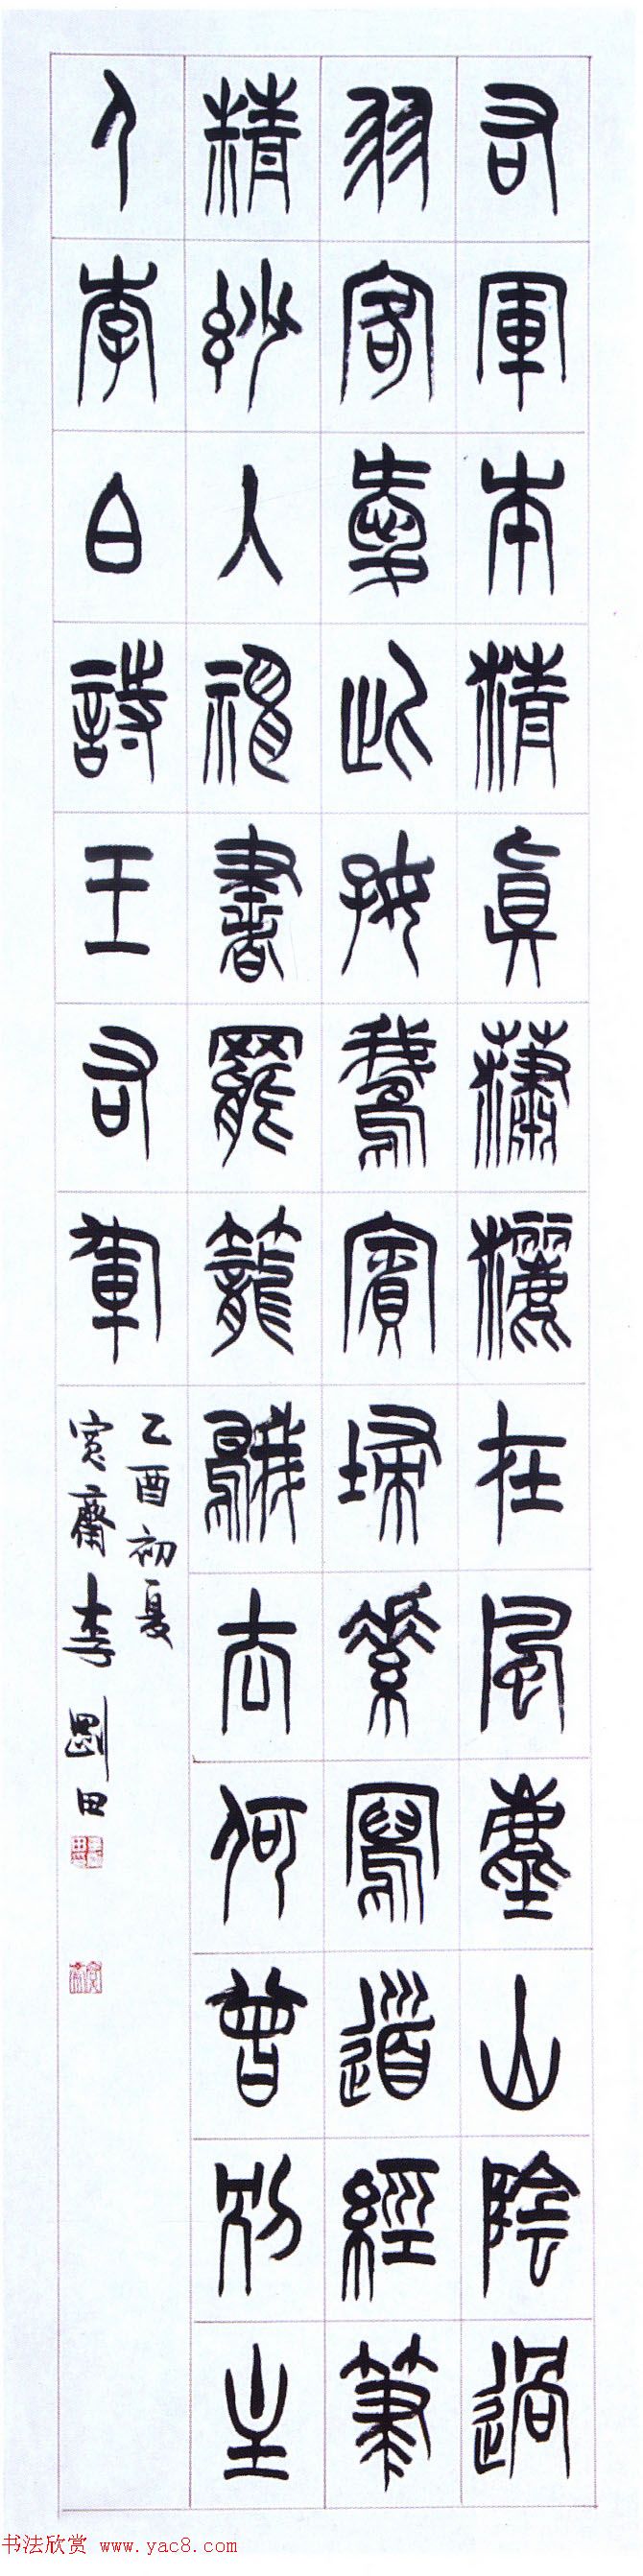 右軍本清真瀟灑在風塵山陰過
羽客愛此好鵝賓掃素寫道經筆
精妙入神書罷籠鵝去何曾別主
人李白詩王右軍
乙酉初夏
寬齋李剛田
书法欣赏 www.yac8.com